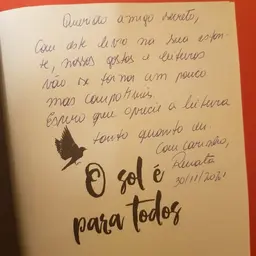 Querido amigo secreto,
Com este livro na sua estan-
te, nossos gostos e leituras
vão se tornar um pouco
mais compatíveis.
Espero que aprecie a leitura
tanto quanto eu
Com carinho,
Renata
30/11/2021
O sol é
para todos